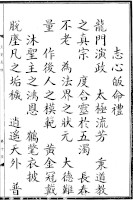 志心皈命禮
龍門演政　太極流芳　秉道教
之真宗　度含靈於五濁　長春
不老　為法界之狀元　大德難
量　作後人之模範　黃金冠戴
沐聖主之洪恩　鶴氅衣披
脫塵凡之垢穢　逍遙天外　普